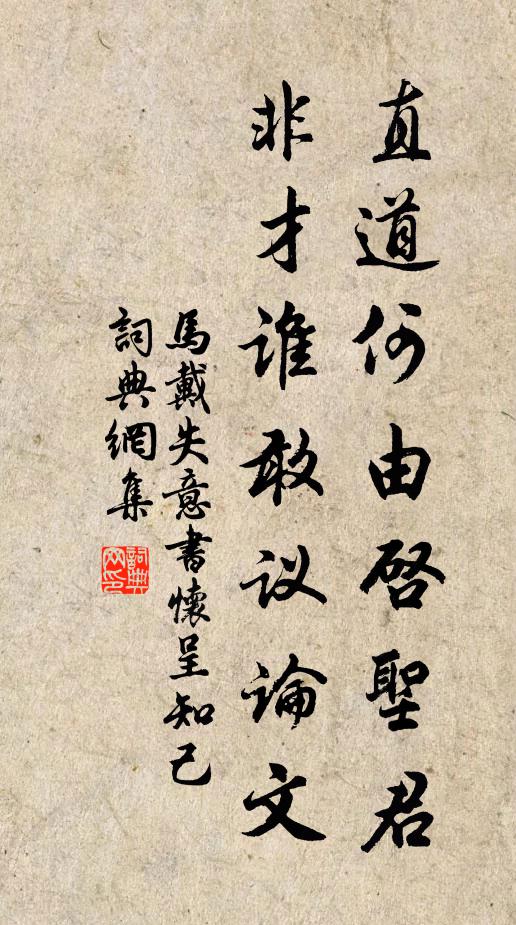 直道何由启聖君
非才谁敢议論文
馬戴失意書懷呈知己
詞典網集
詞典网印